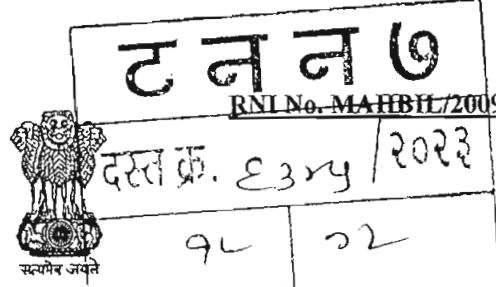 ट न न ७
RNI No. MAHBIL/2009
दस्त क्र. ६३४५ /२०२३
१८
सत्यमेव जयते